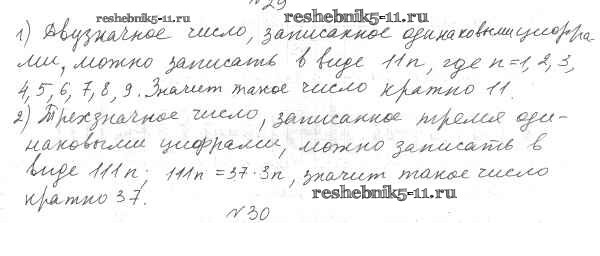 №29
reshebnik5-11.ru
reshebnik5-11.ru
1) Двузначное число, записанное одинаковыми цифра-
ми, можно записать в виде 11n, где n=1, 2, 3,
4, 5, 6, 7, 8, 9. Значит такое число кратно 11.
2) Трехзначное число, записанное тремя оди-
наковыми цифрами, можно записать в
виде 111n; 111n = 37·3n, значит такое число
кратно 37.
reshebnik5-11.ru
№30